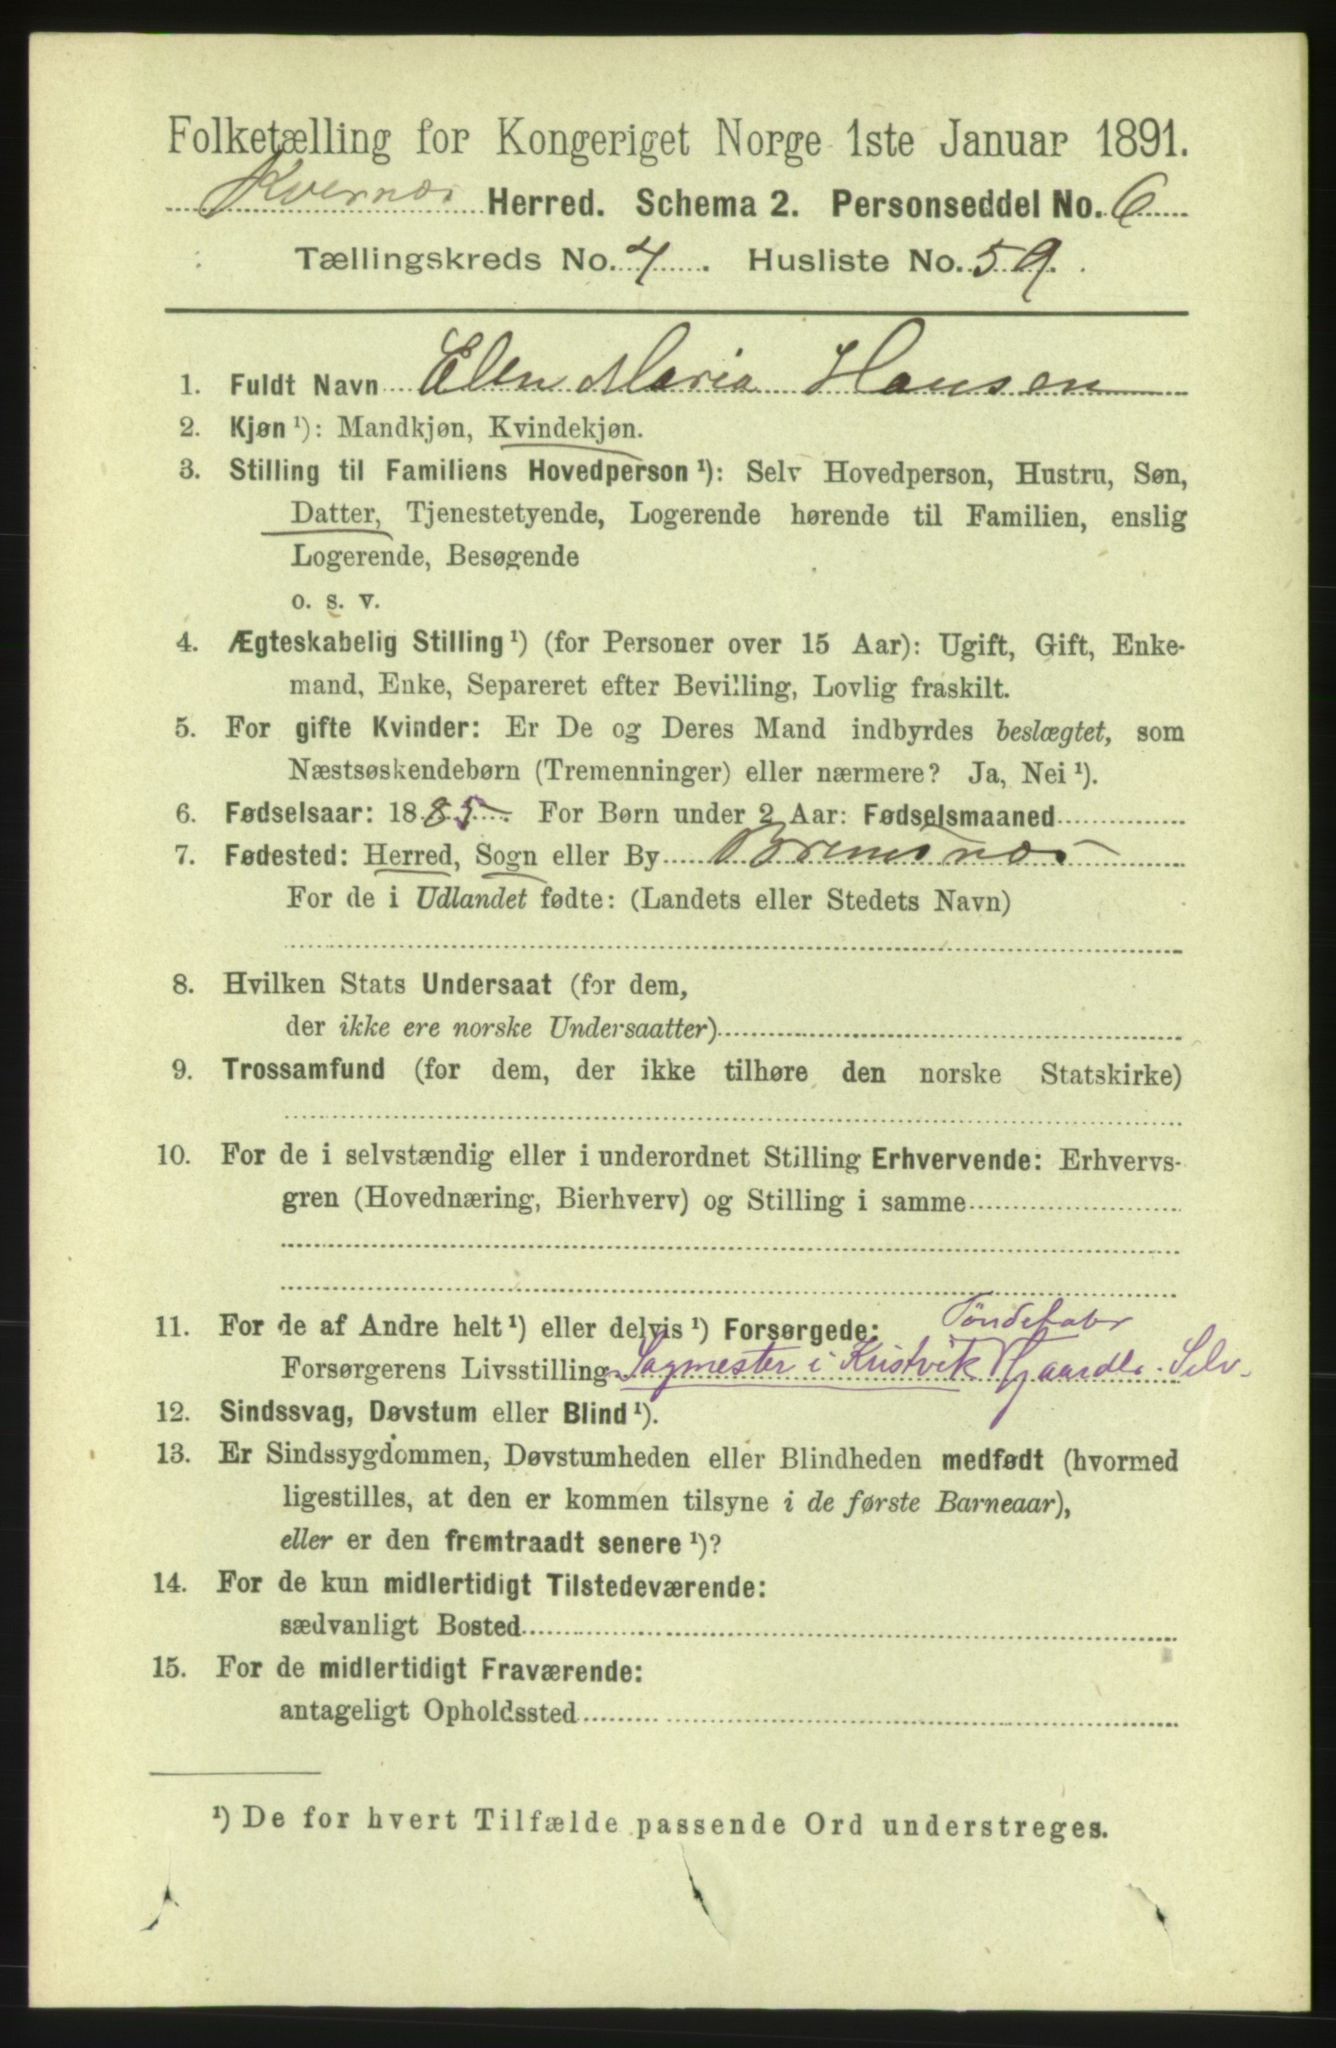 Folketælling for Kongeriget Norge 1ste Januar 1891.
Kvernæs Herred. Schema 2. Personseddel No. 6
Tællingskreds No. 4. Husliste No. 59.
1. Fuldt Navn Elen Maria Hansen
2. Kjøn ¹): Mandkjøn, Kvindekjøn.
3. Stilling til Familiens Hovedperson ¹): Selv Hovedperson, Hustru, Søn,
Datter, Tjenestetyende, Logerende hørende til Familien, enslig
Logerende, Besøgende
o. s. v.
4. Ægteskabelig Stilling ¹) (for Personer over 15 Aar): Ugift, Gift, Enke-
mand, Enke, Separeret efter Bevilling, Lovlig fraskilt.
5. For gifte Kvinder: Er De og Deres Mand indbyrdes beslægtet, som
Næstsøskendebørn (Tremenninger) eller nærmere? Ja, Nei ¹).
6. Fødselsaar: 1885. For Børn under 2 Aar: Fødselsmaaned
7. Fødested: Herred, Sogn eller By Bremsnæs
For de i Udlandet fødte: (Landets eller Stedets Navn)
8. Hvilken Stats Undersaat (for dem,
der ikke ere norske Undersaatter)
9. Trossamfund (for dem, der ikke tilhøre den norske Statskirke)
10. For de i selvstændig eller i underordnet Stilling Erhvervende: Erhvervs-
gren (Hovednæring, Bierhverv) og Stilling i samme
11. For de af Andre helt ¹) eller delvis ¹) Forsørgede: Tøndefabr
Forsørgerens Livsstilling Sagmester i Kristvik Gaardbr. Selv.
12. Sindssvag, Døvstum eller Blind ¹).
13. Er Sindssygdommen, Døvstumheden eller Blindheden medfødt (hvormed
ligestilles, at den er kommen tilsyne i de første Barneaar),
eller er den fremtraadt senere ¹)?
14. For de kun midlertidigt Tilstedeværende:
sædvanligt Bosted
15. For de midlertidigt Fraværende:
antageligt Opholdssted
¹) De for hvert Tilfælde passende Ord understreges.